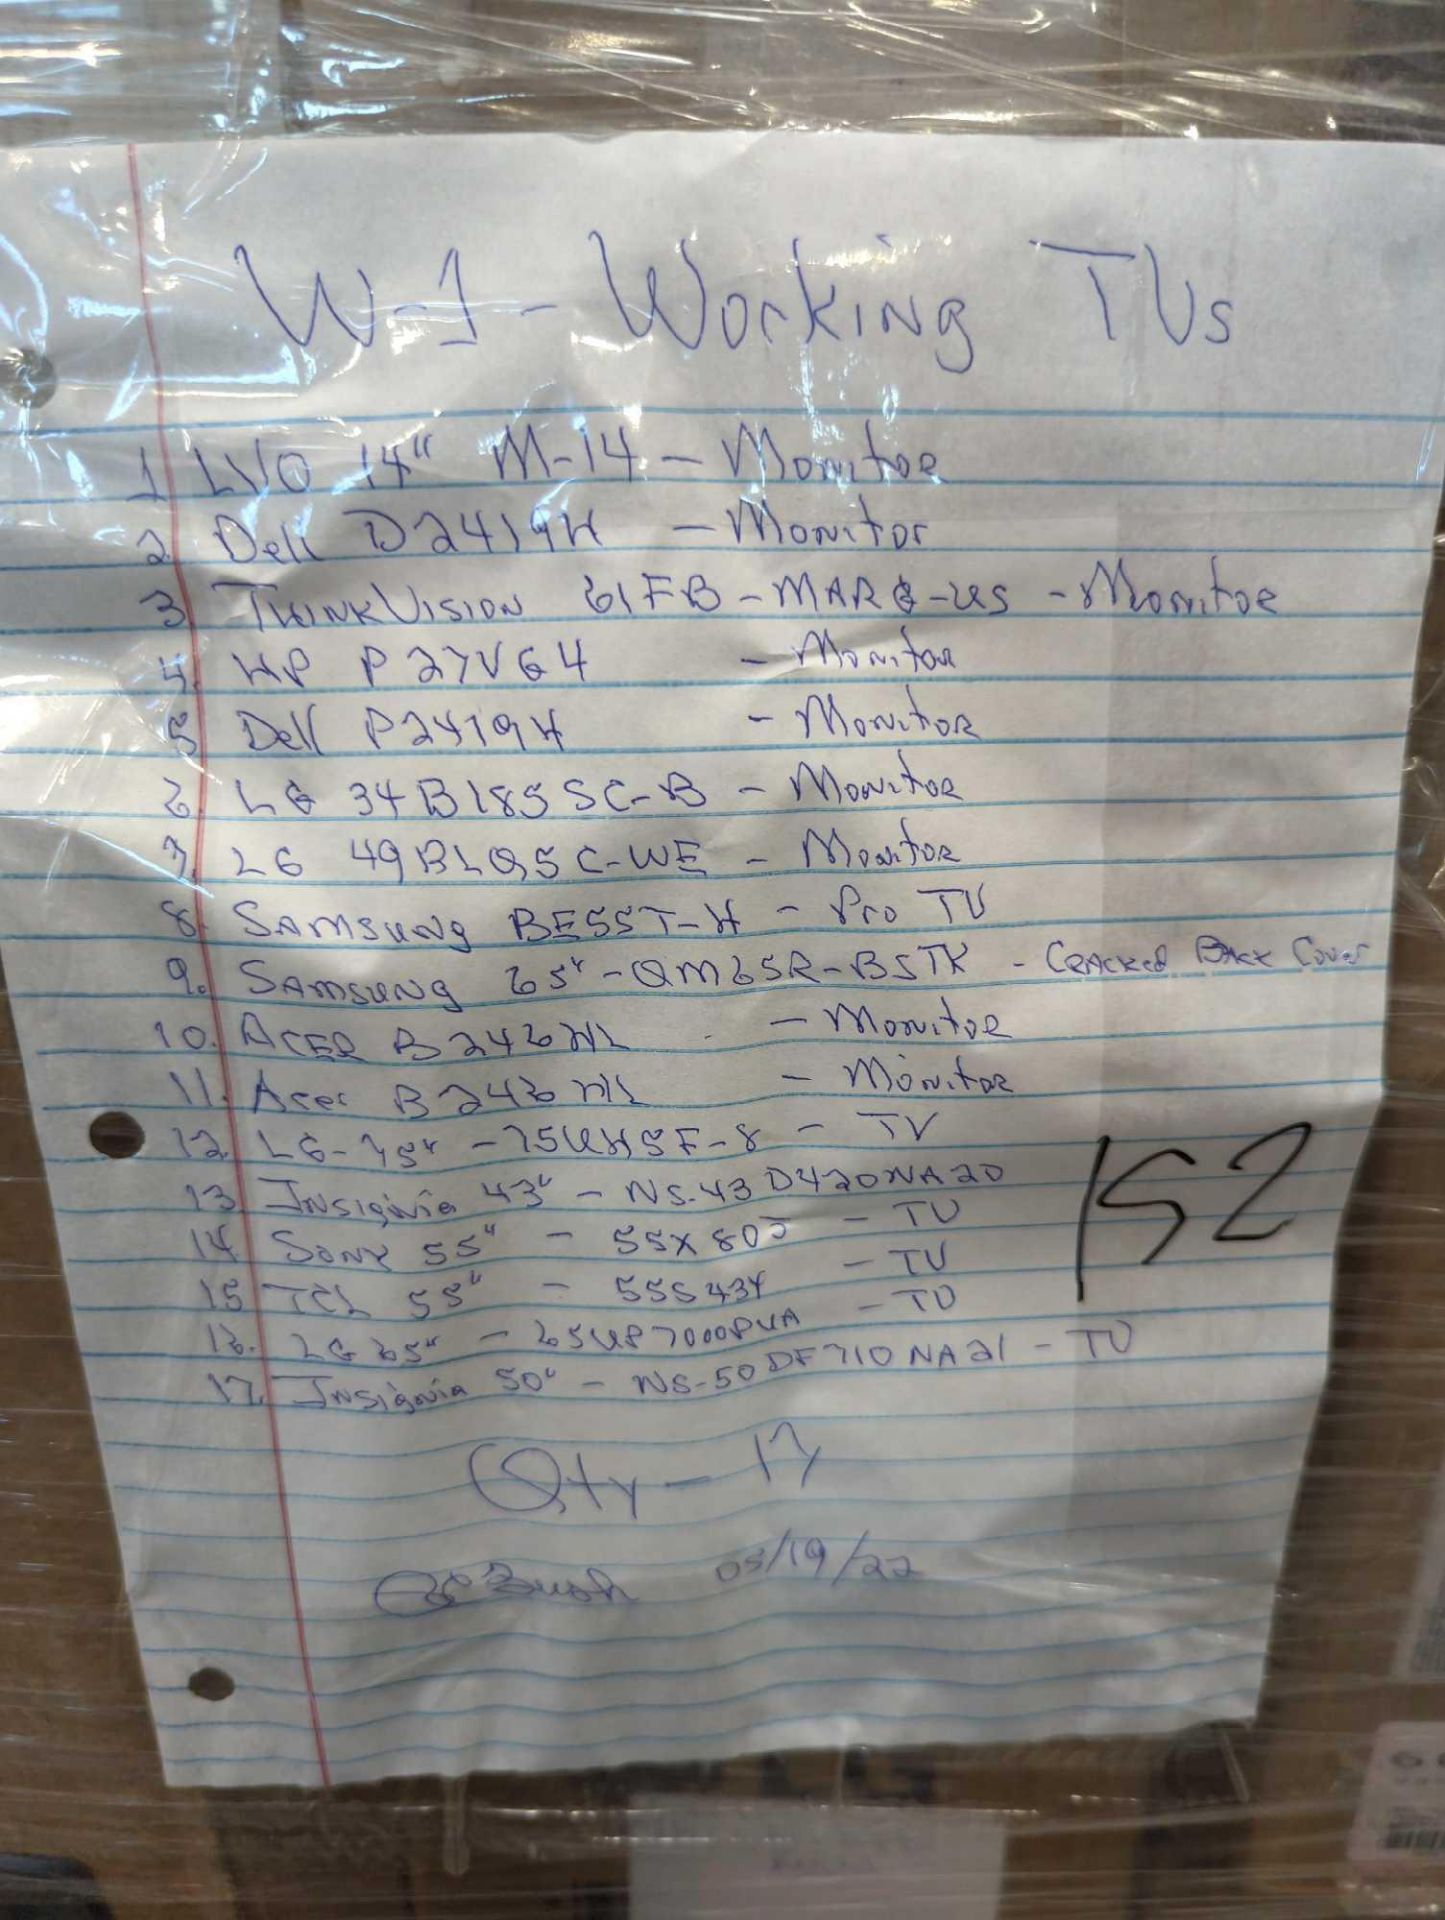 W-1 - Working TVs
1 LVO 14" M-14 - Monitor
2 Dell D2419H - Monitor
3 ThinkVision 61FB-MAR6-US - Monitor
4. HP P27VG4 - Monitor
5 Dell P2419H - Monitor
6. LG 34B185SC-B - Monitor
7. LG 49BLQ5C-WE - Monitor
8. Samsung BE55T-H - Pro TV
9. Samsung 65"-QM65R-BSTK - Cracked Back Cover
10. Acer B246HL - Monitor
11. Acer B246HL - Monitor
12 LG-75" - 75UH5F-8 - TV
13 Insignia 43" - NS-43D420NA20
14 Sony 55" - 55X80J - TV
15 TCL 55" - 55S434 - TV
16. LG 65" - 65UP7000PUA - TV
17. Insignia 50" - NS-50DF710NA21 - TV
152
Qty - 17
05/19/22